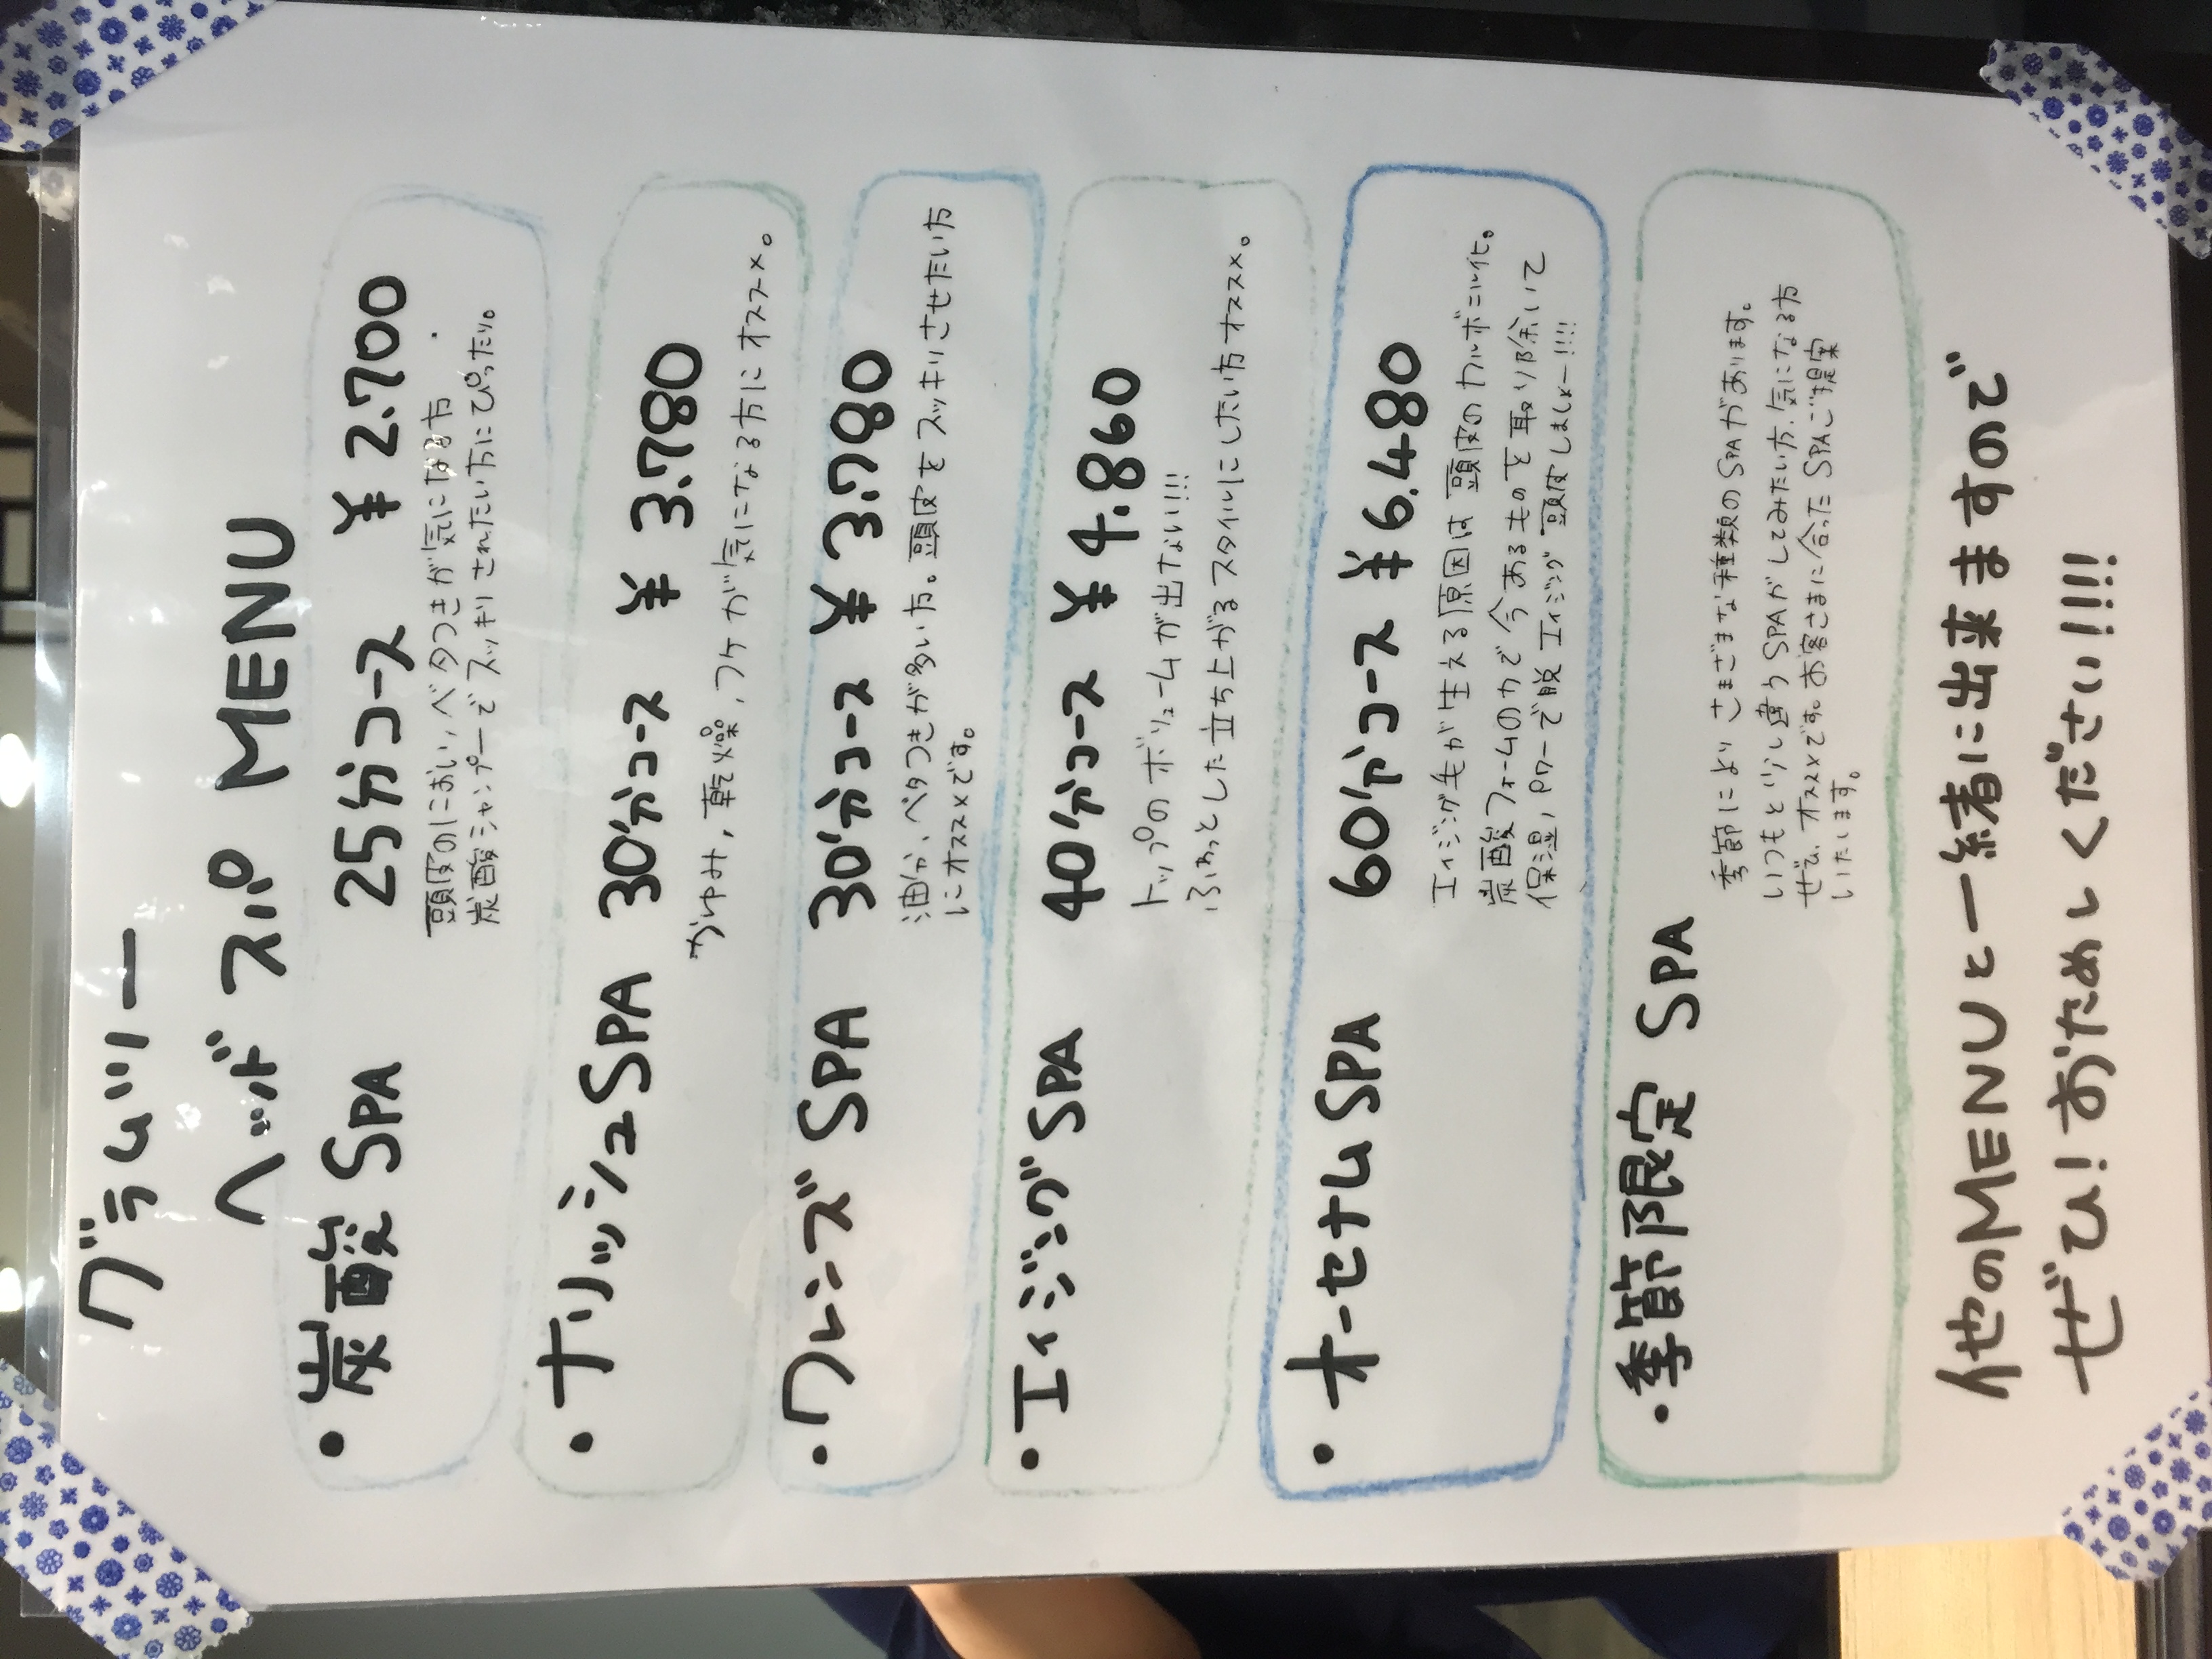 グラムツリー
ヘッドスパ MENU
・炭酸SPA 25分コース ¥2.700
頭皮のにおい、ベタつきが気になる方
炭酸シャンプーでスッキリされたい方にぴったり。
・ナリッシュSPA 30分コース ¥3.780
かゆみ,乾燥,フケが気になる方にオススメ。
・クレンズSPA 30分コース ¥3.780
油分、ベタつきが多い方。頭皮をスッキリさせたい方
にオススメです。
・エイジングSPA 40分コース ¥4.860
トップのボリュームが出ない!!!
ふわっとした立ち上がるスタイルにしたい方オススメ。
・オーセナムSPA 60分コース ¥6.480
エイジング毛が生える原因は頭皮のカルボニル化。
炭酸フォームの力で今あるものを取り除いて
保湿,パワーで脱エイジング頭皮しましょー!!!!
・季節限定 SPA
季節によりさまざまな種類のSPAがあります。
いつもと少し違うSPAがしてみたい方、気になる方
ぜひ、オススメです。お客さまに合ったSPAご提案
いたします。
他のMENUと一緒に出来ますので
ぜひ!おためしください!!!!!